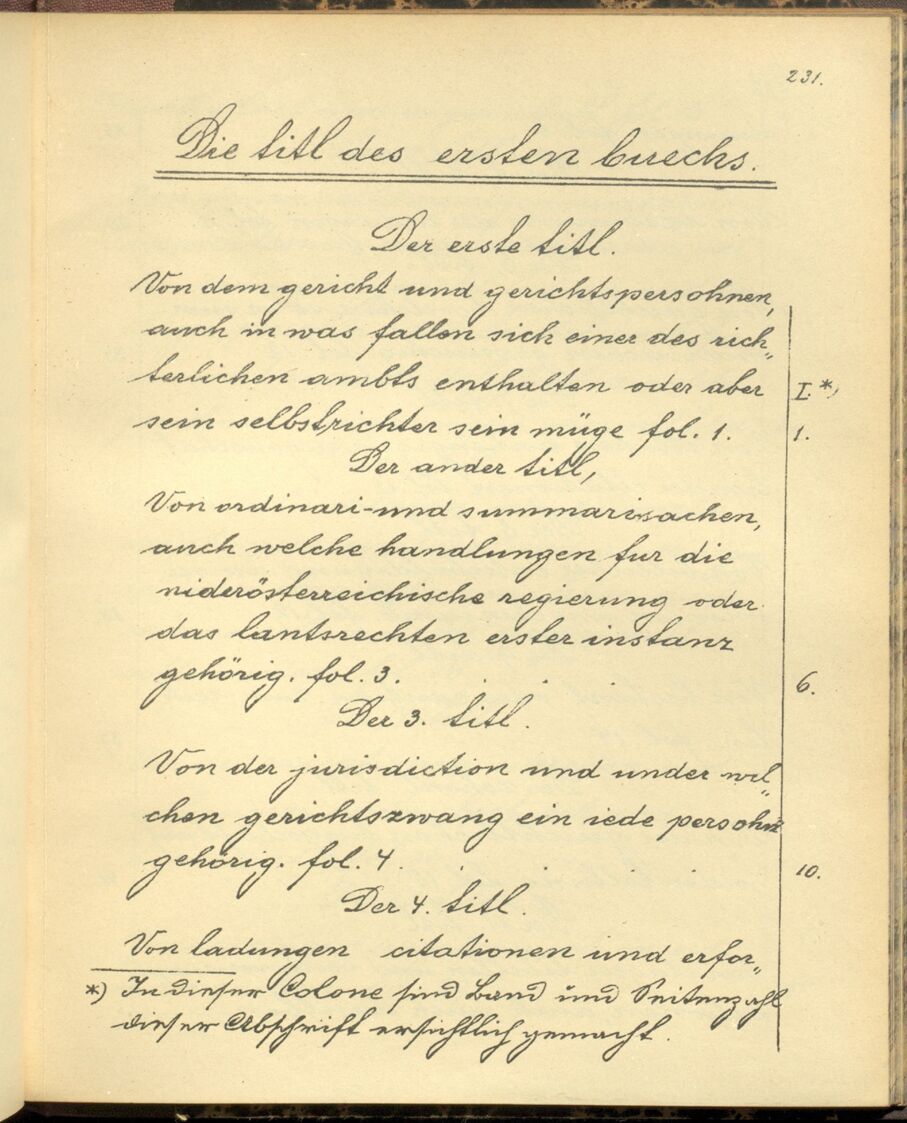 231.
Die titl des ersten buechs.
Der erste titl.
Von dem gericht und gerichtspersohnen,
auch in was fallen sich einer des rich„
terlichen ambts enthalten oder aber I.*)
sein selbstrichter sein müge fol. 1. 1.
Der ander titl,
Von ordinari- und summarisachen,
auch welche handlungen fur die
niderösterreichische regierung oder
das lantsrechten erster instanz
gehörig. fol. 3. . . . 6.
Der 3. titl.
Von der jurisdiction und under wel„
chen gerichtszwang ein iede persohn
gehörig. fol. 4. . . . 10.
Der 4. titl.
Von ladungen citationen und erfor„
*) In dieser Colone sind Band und Seitenzahl
dieser Abschrift ersichtlich gemacht.